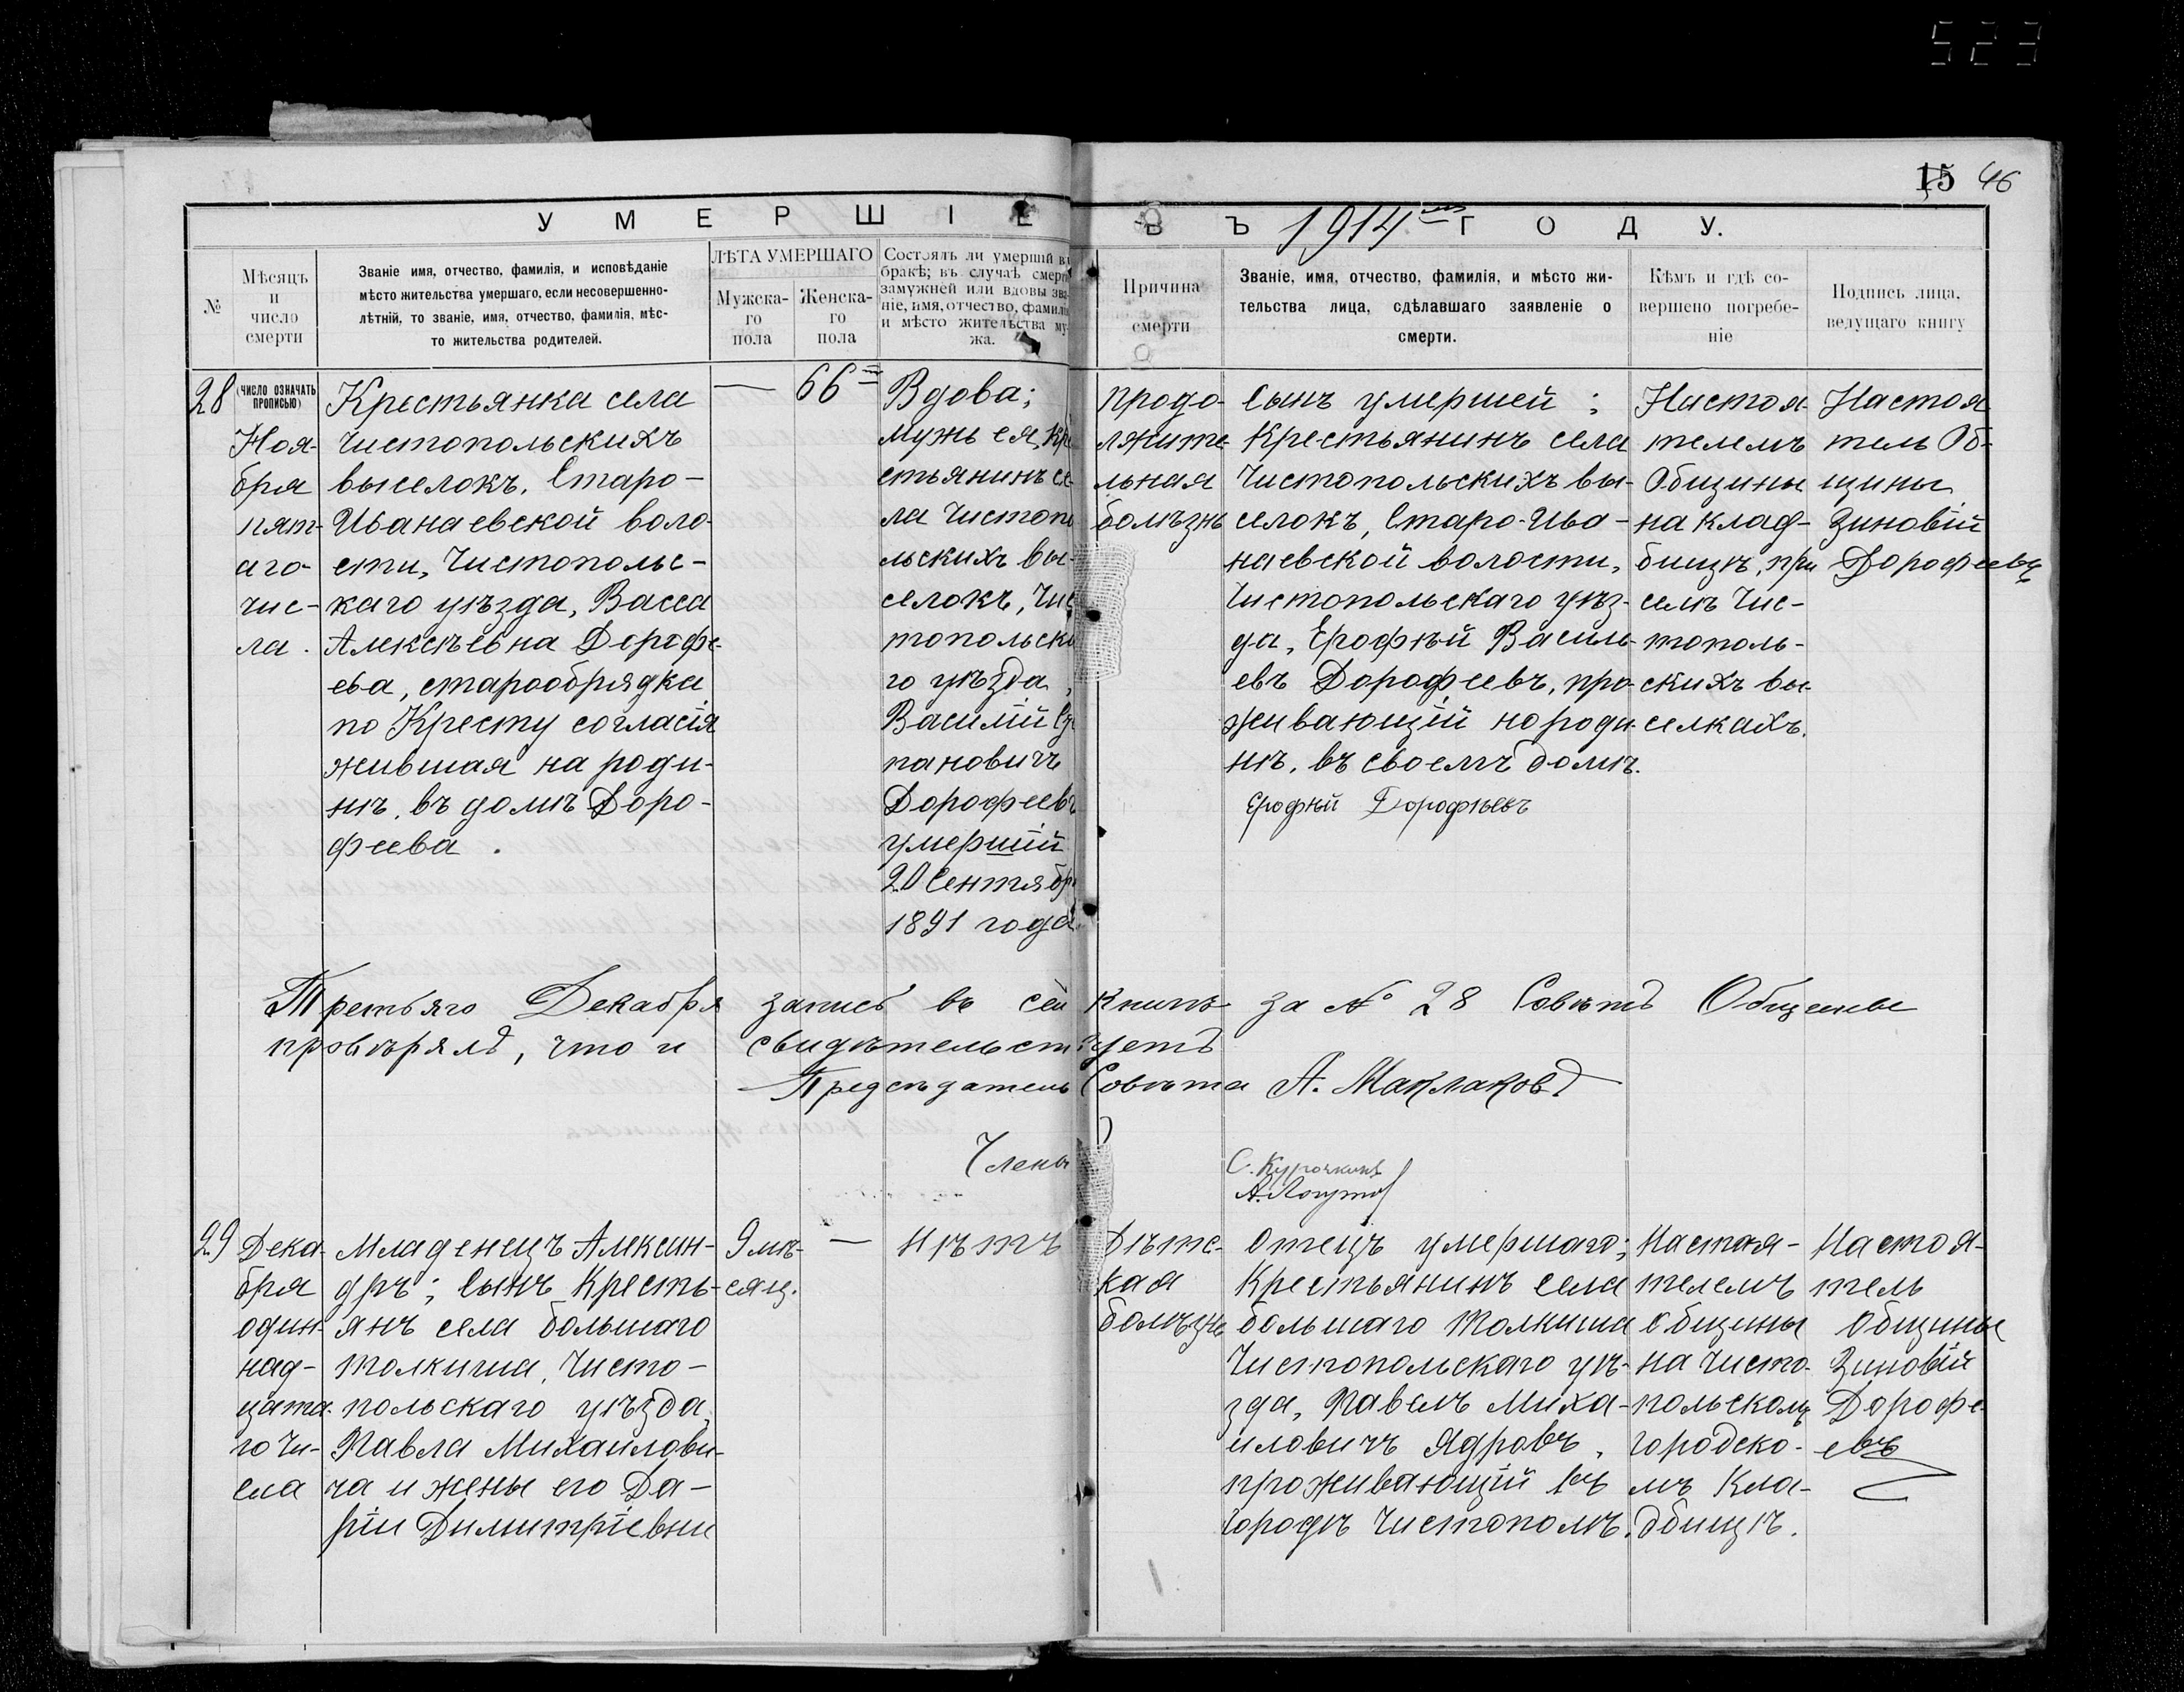 523
15 46
УМЕРШІЕ ВЪ 1914мъ ГОДУ.
№
Мѣсяцъ
и
число
смерти
Званіе имя, отчество, фамилія, и исповѣданіе
мѣсто жительства умершаго, если несовершенно-
лѣтній, то званіе, имя, отчество, фамилія, мѣс-
то жительства родителей.
ЛѢТА УМЕРШАГО
Мужска-
го
пола
Женска-
го
пола
Состоялъ ли умершій въ
бракѣ; въ случаѣ смерти
замужней или вдовы зва-
ніе, имя, отчество, фамилія
и мѣсто жительства му-
жа.
Причина
смерти
Званіе, имя, отчество, фамилія, и мѣсто жи-
тельства лица, сдѣлавшаго заявленіе о
смерти.
Кѣмъ и гдѣ со-
вершено погребе-
ніе
Подпись лица,
ведущаго книгу
28
(ЧИСЛО ОЗНАЧАТЬ
ПРОПИСЬЮ)
Ноя-
бря
пят-
аго-
чис-
ла.
Крестьянка села
Чистопольскихъ
выселокъ, Старо-
Иванаевской воло-
сти, Чистопольс-
каго уѣзда, Васса
Алексѣевна Дорофе-
ева, старообрядка
по Кресту согласія
жившая на роди-
нѣ, въ домѣ Доро-
феева.
—
66
Вдова;
мужъ ея, Кре
стьянинъ се-
ла Чистопо
льскихъ вы-
селокъ, Чис
топольска
го уѣзда,
Василій Сте
пановичъ
Дорофеевъ
умершій
20 Сентябр
1891 года.
продо-
лжите-
льная
болѣзнь
Сынъ умершей:
Крестьянинъ села
Чистопольскихъ вы-
селокъ, Старо-Ива-
наевской волости,
Чистопольскаго уѣз-
да, Ерофѣй Василь-
евъ Дорофеевъ, про-
живающій на роди-
нѣ, въ своемъ домѣ.
Ерофѣй Дорофѣевъ
Настоя-
телемъ
Общины
на клад-
бищѣ, при
селѣ Чис-
тополь-
скихъ вы-
селкахъ.
Настоя-
тель Об-
щины
Зиновій
Дорофеевъ
Третьяго Декабря запись въ сей книгѣ за № 28 Совѣтъ Общины
провѣрялъ, что и свидѣтельствуетъ
Предсѣдатель Совѣта А. Маклаковъ
Члены
С. Курочкинъ
29
Дека-
бря
один-
над-
цата-
го Чи-
сла
Младенецъ Алексан-
дръ; Сынъ Кресть-
янъ села большаго
Толкиша, Чисто-
польскаго уѣзда,
Павла Михаилови-
ча и жены его Да-
ріи Димитріевны
9 мѣ-
сяц.
—
Нѣтъ
Дѣтс-
кая
болѣзнь
Отецъ умершаго;
Крестьянинъ села
большаго Толкиша
Чистопольскаго уѣ-
зда, Павелъ Миха-
иловичъ Ядровъ,
проживающій въ
городѣ Чистополѣ.
Настоя-
телемъ
Общины
на Чисто-
польскомъ
Городско-
мъ Кла-
дбищѣ.
Настоя-
тель
Общины
Зиновій
Дорофе-
евъ